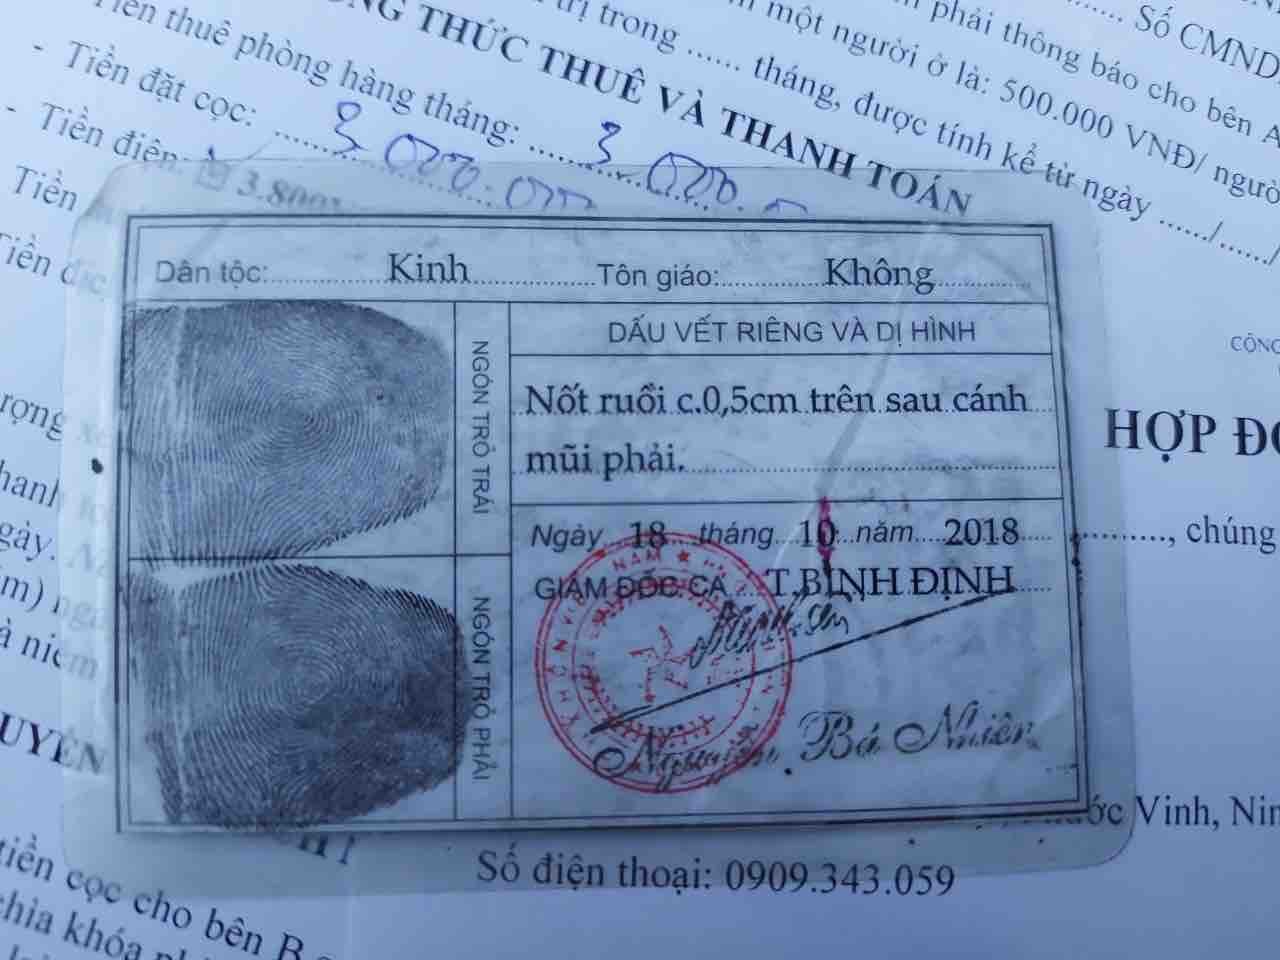 THỨC THUÊ VÀ THANH TOÁN
thuê phòng hàng tháng: 3 000.
- Tiền đặt cọc: 3 000.000
- Tiền điện: 3.800
Tiền
trị trong ...... tháng, được tính kể từ ngày ....../....../
một người ở là: 500.000 VNĐ/ người
phải thông báo cho bên A
Số CMND
Dân tộc: Kinh Tôn giáo: Không
NGÓN TRỎ TRÁI
DẤU VẾT RIÊNG VÀ DỊ HÌNH
Nốt ruồi c.0,5cm trên sau cánh
mũi phải.
NGÓN TRỎ PHẢI
Ngày 18 tháng 10 năm 2018
GIÁM ĐỐC CA T.BÌNH ĐỊNH
Nguyễn Bá Nhiên
HỢP
, chúng
Vinh,
Số điện thoại: 0909.343.059
tiền cọc cho bên B
chìa khóa